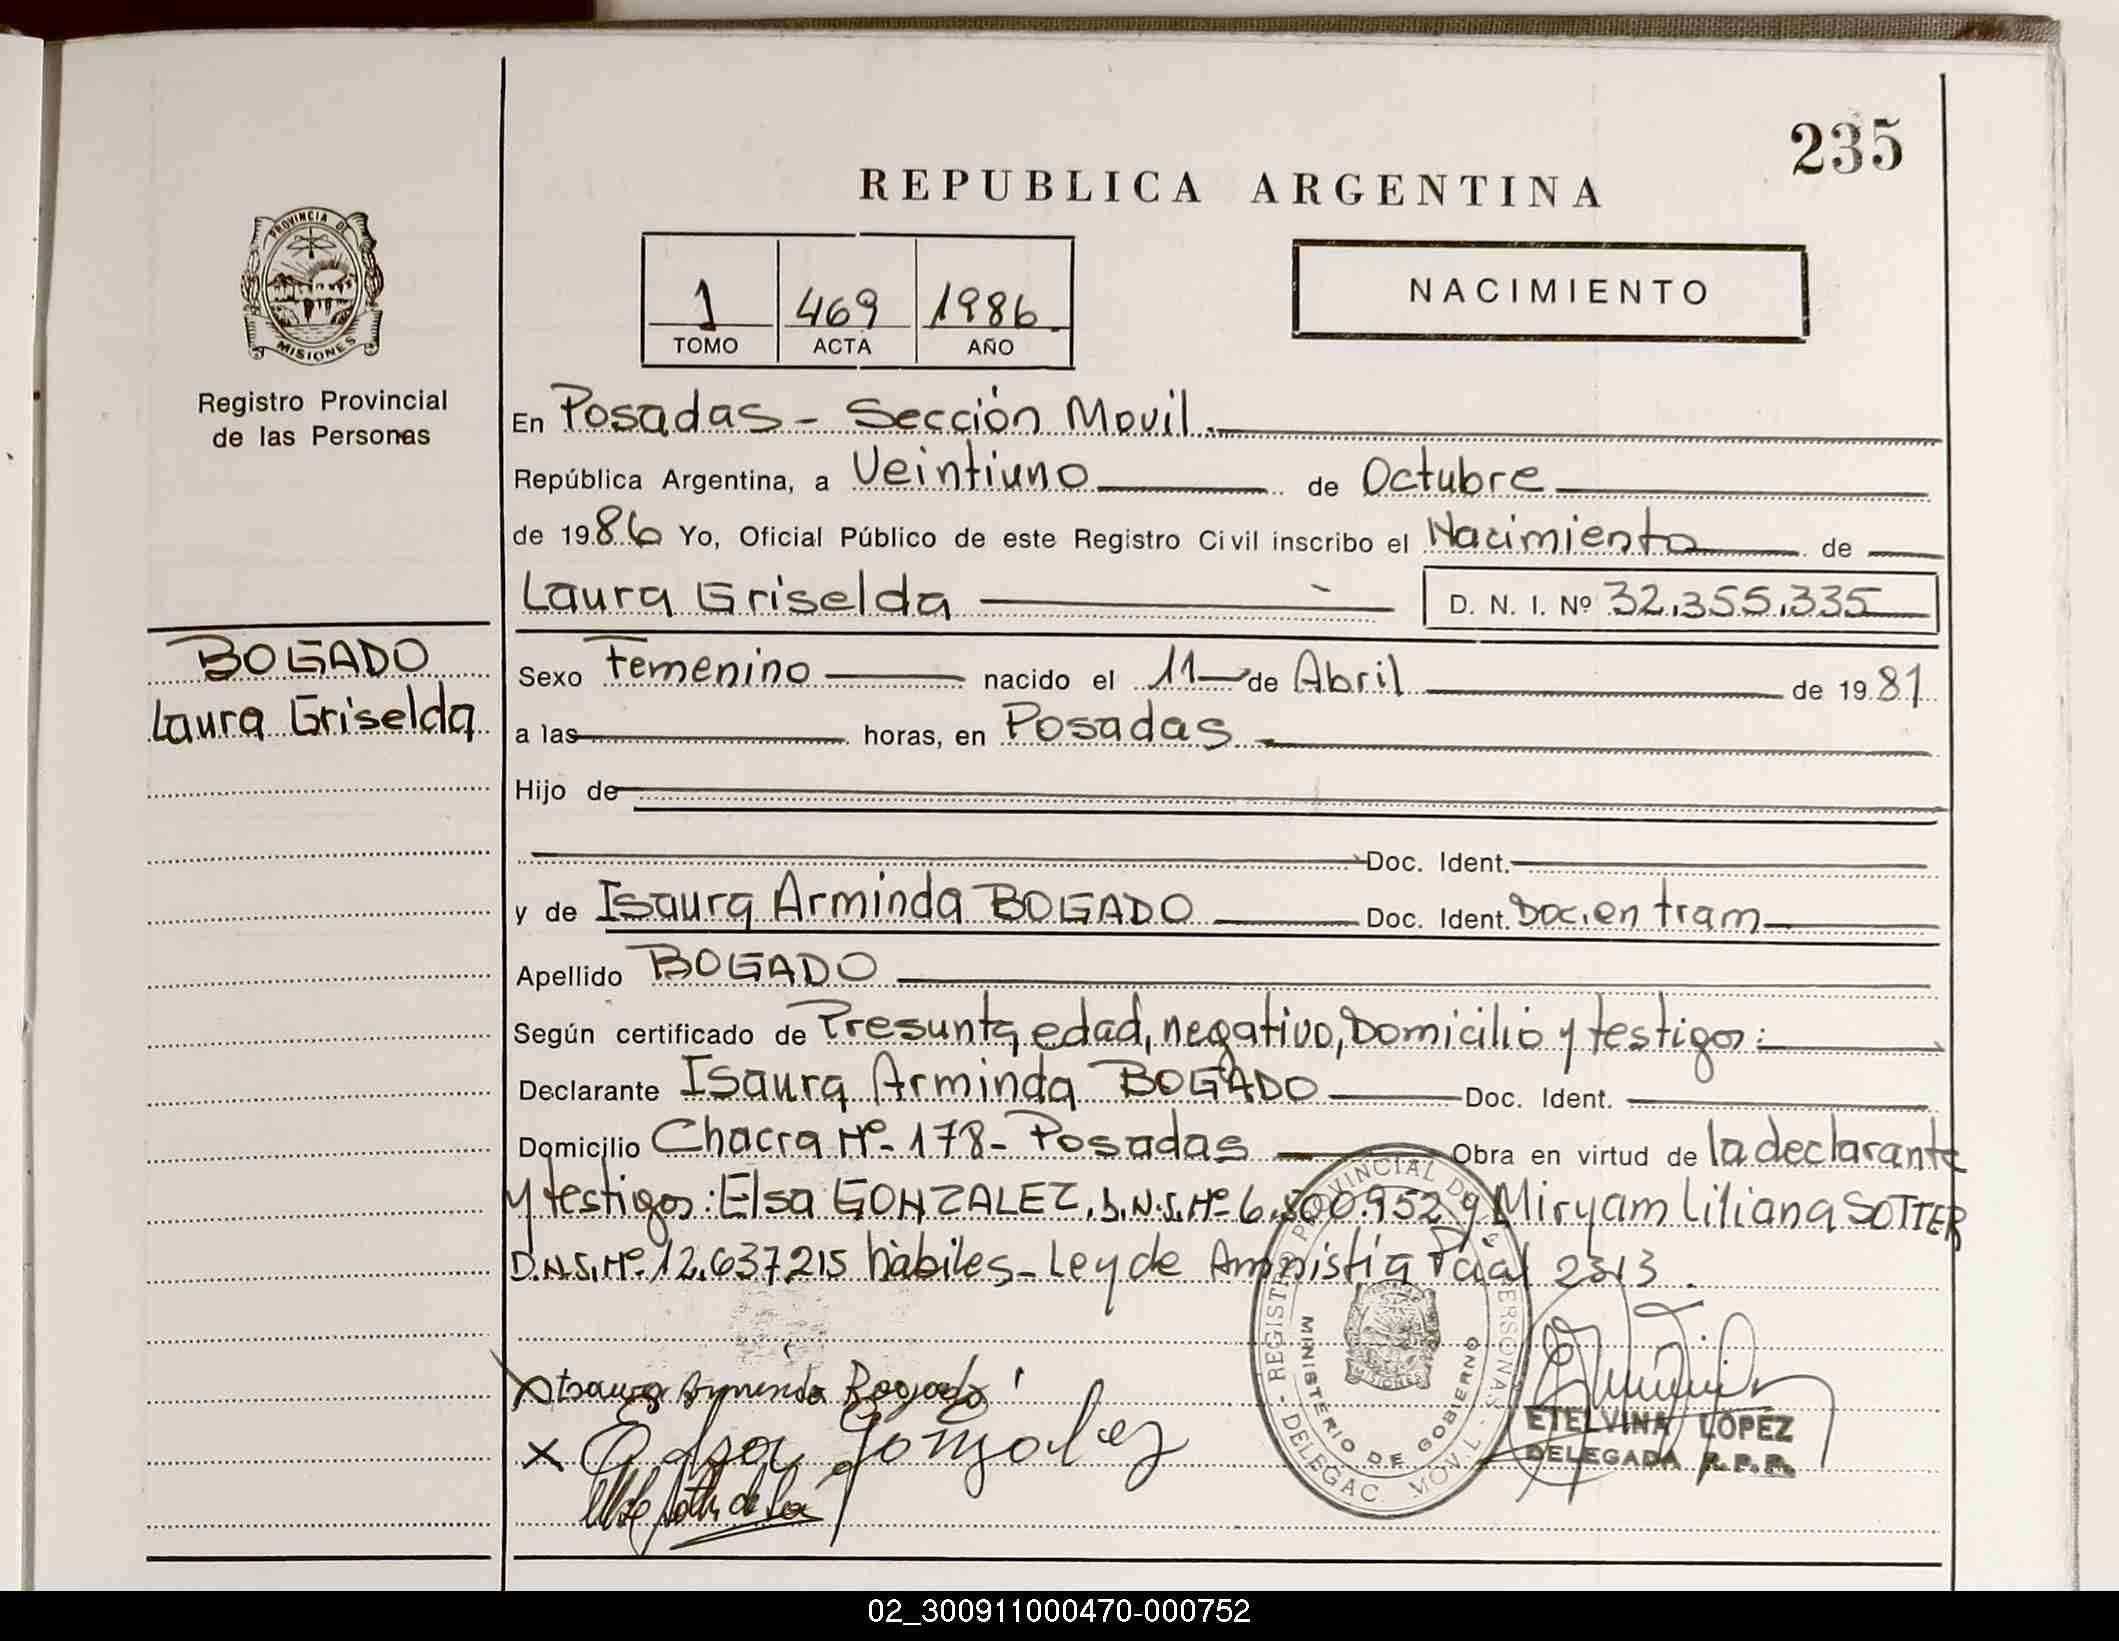 235
REPUBLICA ARGENTINA
PROVINCIA DE
MISIONES
1 469 1986
TOMO ACTA AÑO
NACIMIENTO
Registro Provincial
de las Personas
En Posadas - Sección Movil.
República Argentina, a Veintiuno de Octubre
de 1986 Yo, Oficial Público de este Registro Civil inscribo el Nacimiento de
Laura Griselda D. N. I. Nº 32.355.335
BOGADO
Laura Griselda
Sexo Femenino nacido el 11 de Abril de 1981
a las horas, en Posadas
Hijo de
Doc. Ident.
y de Isaura Arminda BOGADO Doc. Ident. Doc. en tram
Apellido BOGADO
Según certificado de Presunta edad, negativo, Domicilio y testigos:
Declarante Isaura Arminda BOGADO Doc. Ident.
Domicilio Chacra Nº 178 - Posadas Obra en virtud de la declarante
y testigos: Elsa GONZALEZ, D.N.I. Nº 6.500.952 y Miryam Liliana SOTTER
D.N.I. Nº 12.637215 hàbiles - Ley de Amnistia Pcial 2313.
REGISTRO PROVINCIAL DE PERSONAS - DELEGAC. MOVIL
MINISTERIO DE GOBIERNO
MISIONES
x Isaura Arminda Bogado
x Elsa Gonzalez
ETELVINA LOPEZ
DELEGADA R.P.P.
02_300911000470-000752